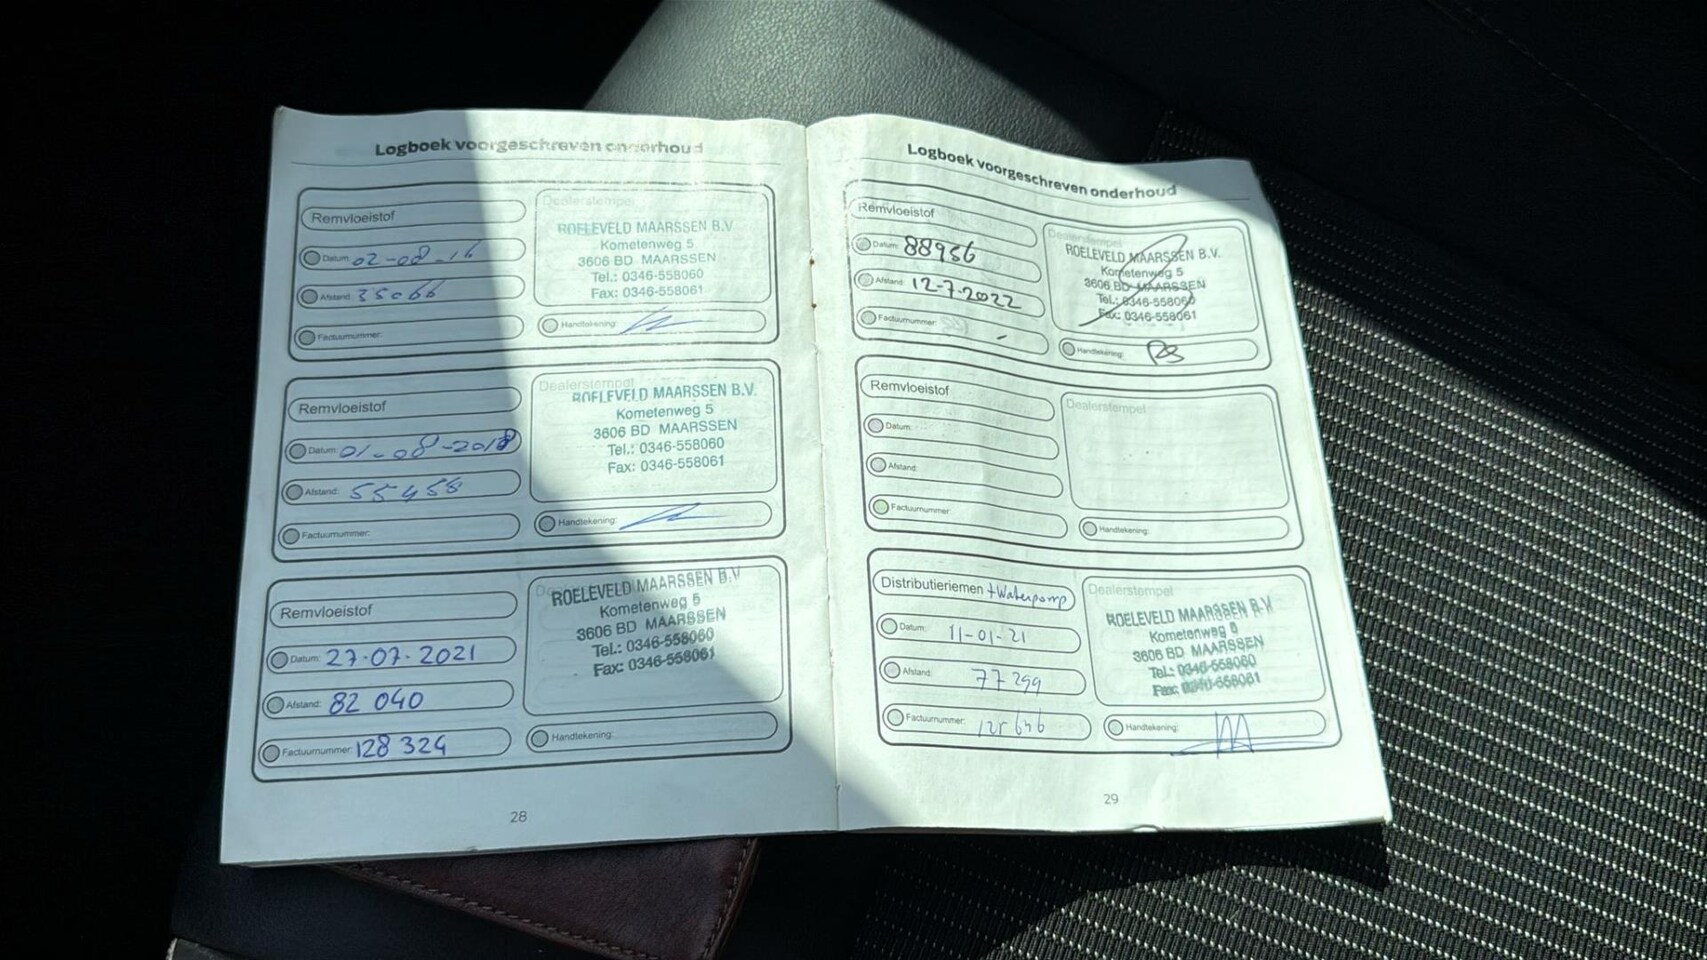 Logboek voorgeschreven onderhoud
Remvloeistof
Datum: 02-08-16
Afstand: 35066
Factuurnummer:
Dealerstempel
ROELEVELD MAARSSEN B.V.
Kometenweg 5
3606 BD MAARSSEN
Tel.: 0346-558060
Fax: 0346-558061
Handtekening:
Remvloeistof
Datum: 01-08-2018
Afstand: 55458
Factuurnummer:
Dealerstempel
ROELEVELD MAARSSEN B.V.
Kometenweg 5
3606 BD MAARSSEN
Tel.: 0346-558060
Fax: 0346-558061
Handtekening:
Remvloeistof
Datum: 27-07-2021
Afstand: 82 040
Factuurnummer: 128 324
ROELEVELD MAARSSEN B.V
Kometenweg 5
3606 BD MAARSSEN
Tel.: 0346-558060
Fax: 0346-558061
Handtekening:
28
Logboek voorgeschreven onderhoud
Remvloeistof
Datum: 88956
Afstand: 12-7-2022
Factuurnummer:
Dealerstempel
ROELEVELD MAARSSEN B.V.
Kometenweg 5
3606 BD MAARSSEN
Tel.: 0346-558060
Fax: 0346-558061
Handtekening:
Remvloeistof
Datum:
Afstand:
Factuurnummer:
Dealerstempel
Handtekening:
Distributieriemen + Waterpomp
Datum: 11-01-21
Afstand: 77 299
Factuurnummer:
Dealerstempel
ROELEVELD MAARSSEN B.V
Kometenweg 5
3606 BD MAARSSEN
Tel.: 0346-558060
Fax: 0346-558061
Handtekening:
29